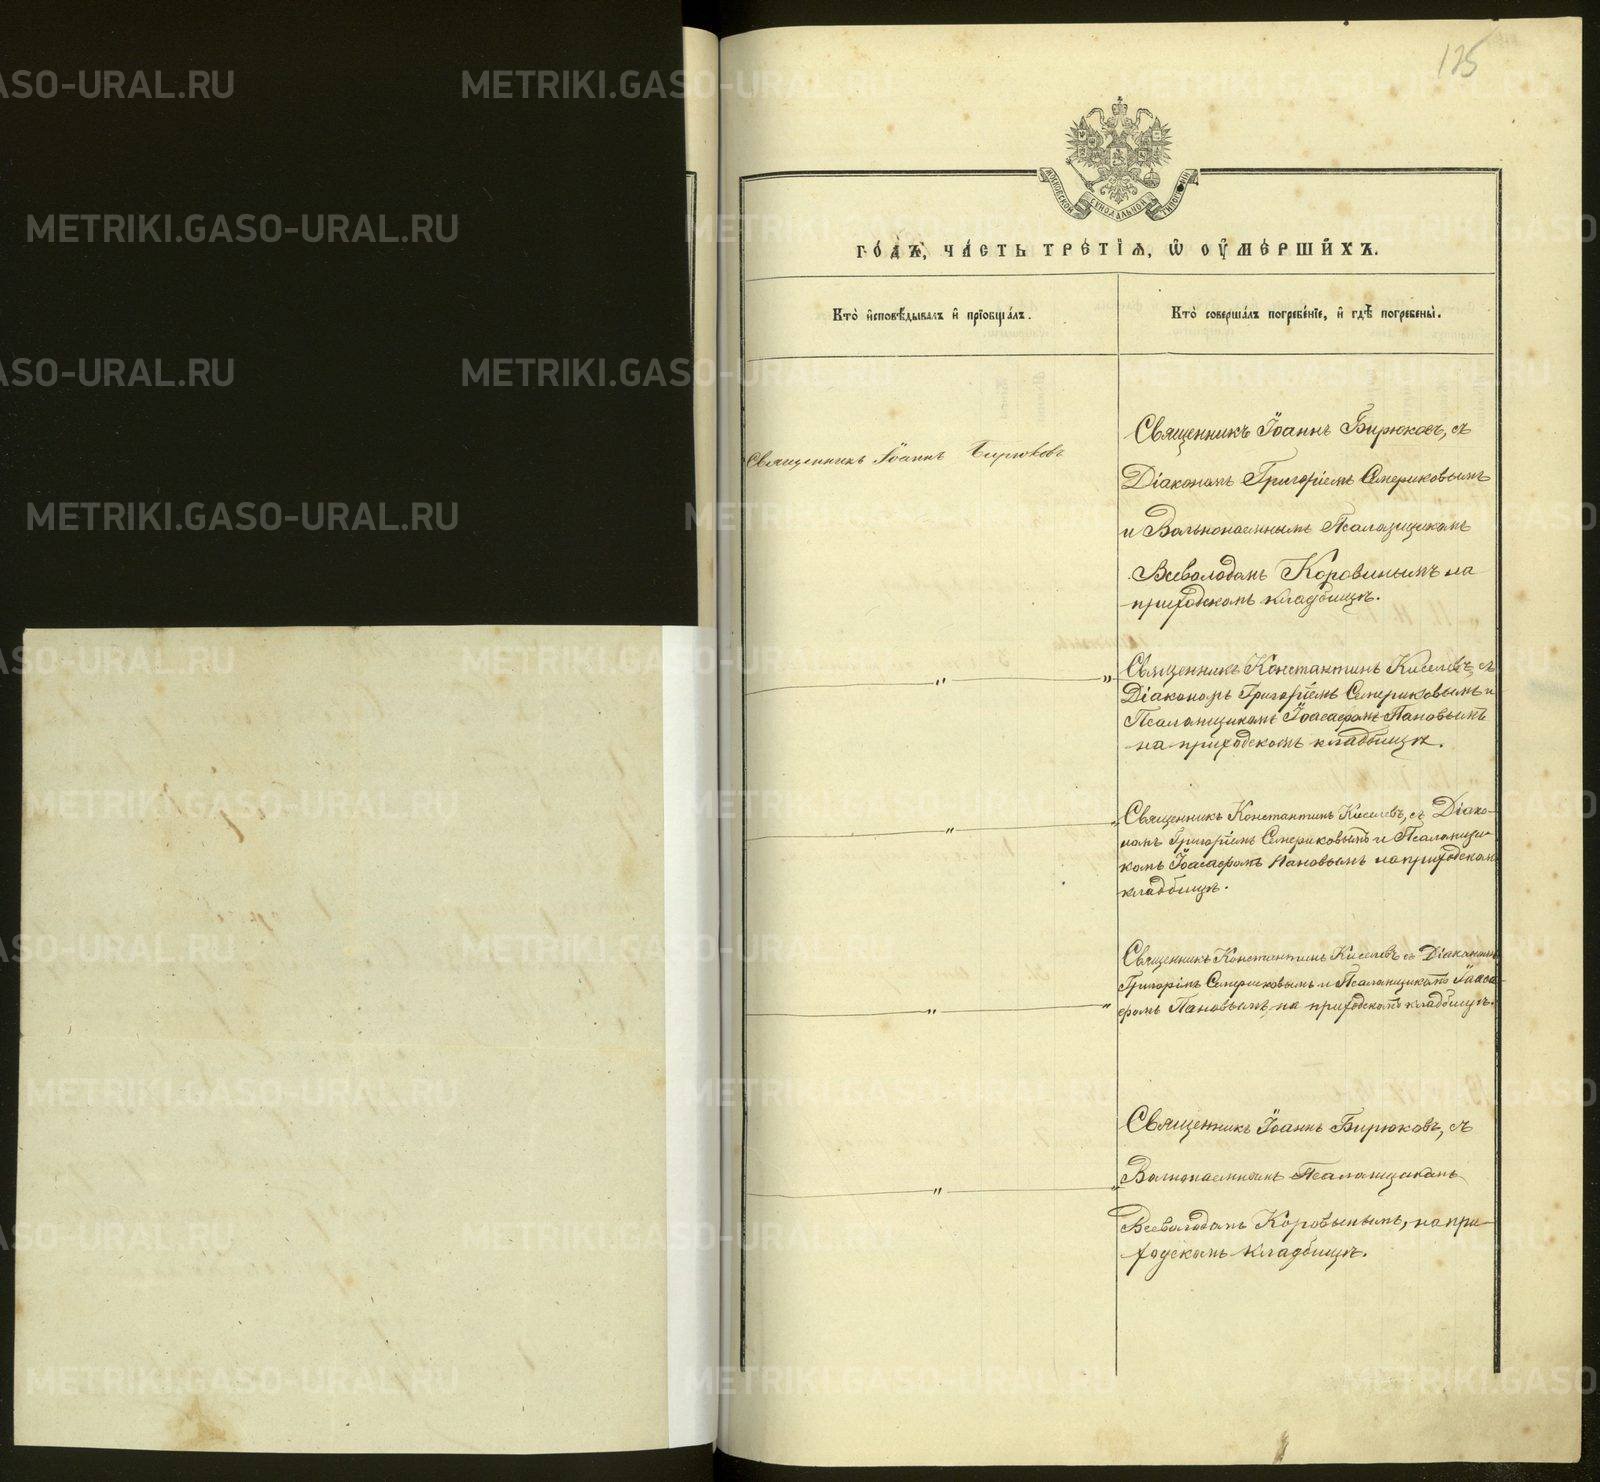 125
МОСКОВСКОЙ СѴНОДАЛЬНОЙ ТИПОГРАФІИ
ГО́ДЪ, ЧА́СТЬ ТРЕ́ТІѦ, Ѡ ОУ҆МЕ́РШИХЪ.
Кто̀ и҆сповѣ́дывалъ и҆ прїѡбща́лъ.
Кто̀ соверша́лъ погребе́нїе, и҆ гдѣ̀ погребены̀.
Священникъ Іоаннъ Бирюковъ
Священникъ Іоаннъ Бирюковъ, съ
Діакономъ Григоріемъ Смериковымъ
и Вольнонаемнымъ Псаломщикомъ
Всеволодомъ Коровинымъ на
приходскомъ кладбищѣ.
— " — "
Священникъ Константинъ Киселевъ, съ
Діакономъ Григоріемъ Смериковымъ и
Псаломщикомъ Іоасафомъ Пановымъ
на приходскомъ кладбищѣ.
— " — "
Священникъ Константинъ Киселевъ, съ Діако-
номъ Григоріемъ Смериковымъ и Псаломщи-
комъ Іоасафомъ Пановымъ на приходскомъ
кладбищѣ.
— " — "
Священникъ Константинъ Киселевъ съ Діакономъ
Григоріемъ Смериковымъ и Псаломщикомъ Іоаса-
фомъ Пановымъ, на приходскомъ кладбищѣ.
— " — "
Священникъ Іоаннъ Бирюковъ, съ
Волнонаемномъ Псаломщикомъ
Всеволодомъ Коровинымъ, на при-
ходскомъ кладбищѣ.